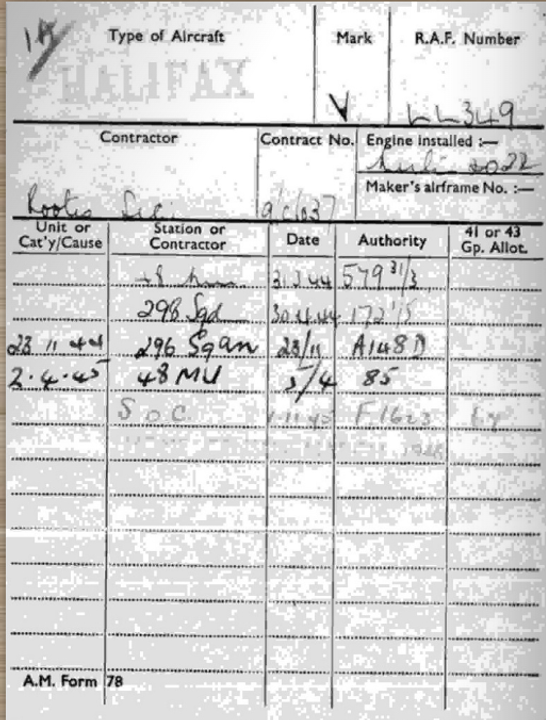 Type of Aircraft Mark R.A.F. Number
HALIFAX V LL349
Contractor Contract No. Engine installed :—
Maker's airframe No. :—
Rootes
Unit or Cat'y/Cause Station or Contractor Date Authority 41 or 43 Gp. Allot.
48 31.3.44 579 31/3
298 Sqd 30.4.44
28 11 44 296 Sqdn 28/11 A148D
2.4.45 48 MU 5/4 85
S O C F1623
A.M. Form 78